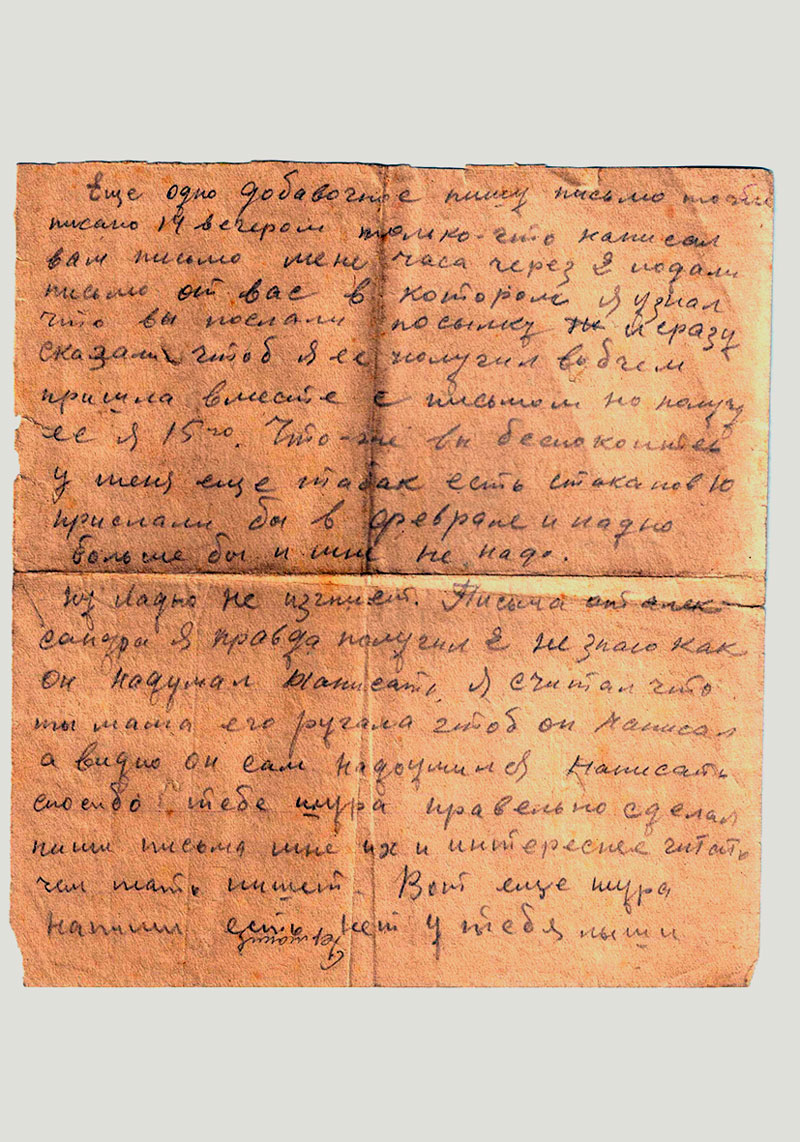 Еще одно добавочное пишу письмо
писано 14 вечером толико-что написал
вам письмо мене часа через 2 подали
письмо от вас в котором я узнал
что вы послали посылку и сразу
сказали чтоб я ее получил вобчем
пришла вместе с письмом но получу
ее я 15го. Что-же вы беспокоитес
у меня еще табак есть стаканов 10
прислали бы в феврале и ладно
больше бы и мне не надо.
Ну ладно не изгниет. Письма от алек
сандра я правда получил 2 не знаю как
он надумал написать, я считал что
ты мама его ругала чтоб он написал
а видно он сам надоумился написать
спосибо тебе шура правельно сделал
пиши письма мне их и интереснее читать
чем мать пишет. Вот еще шура
напиши есть нет у тебя лыши